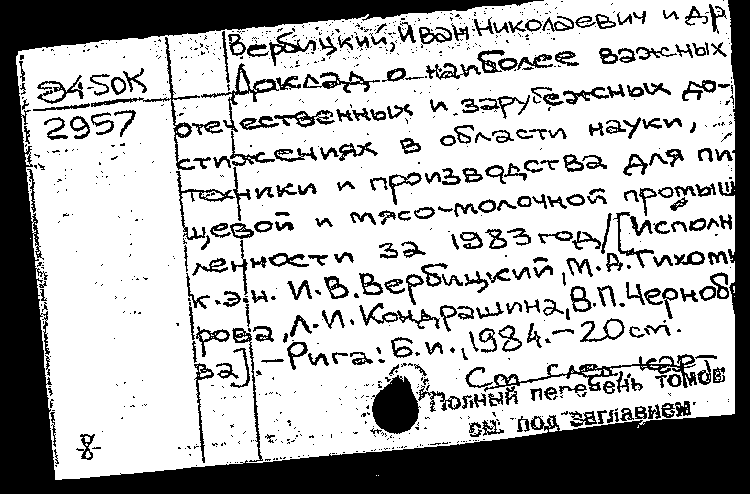 Вербицкий, Иван Николаевич и др
Э4-50К
Доклад о наиболее важных
2957
отечественных и зарубежных до-
стижениях в области науки,
техники и производства для пи-
щевой и мясо-молочной промыш
ленности за 1983 год/[Исполн
к.э.н. И.В.Вербицкий, М.А.Тихоми
рова, Л.И. Кондрашина, В.П.Чернобр
ва].–Рига: Б.и., 1984.–20 cm.
См след. карт
Полный перечень томов
см. под заглавием
8